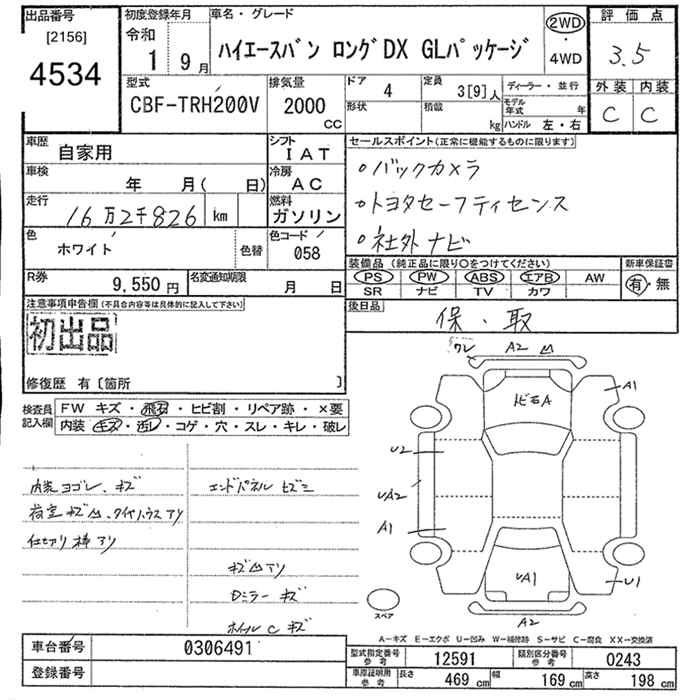 出品番号
[2156]
4534
初度登録年月
令和
1 9月
車名・グレード
ハイエースバン ロングDX GLパッケージ
2WD
・
4WD
評価点
3.5
外装 内装
C C
型式
CBF-TRH200V
排気量
2000
CC
ドア
4
形状
定員
3[9]人
積載
kg
ディーラー・並行
モデル年式 年
ハンドル 左・右
車歴
自家用
シフト
IAT
車検
年 月( 日)
冷房
AC
走行
16万2千826 km
燃料
ガソリン
色
ホワイト
色替
色コード
058
R券
9,550円
名変通知期限
月 日
セールスポイント(正常に機能するものに限ります)
○バックカメラ
○トヨタセーフティセンス
○社外ナビ
装備品 (純正品に限り○をつけてください)
新車保証書
PS PW ABS エアB AW
SR ナビ TV カワ
有・無
後日品
保・取
注意事項申告欄(不具合内容等は具体的に記入して下さい)
初出品
修復歴 有〔箇所 〕
検査員記入欄
FW キズ・飛石・ヒビ割・リペア跡・×要
内装 キズ・汚レ・コゲ・穴・スレ・キレ・破レ
内装ヨゴレ、キズ
荷室キズ凹、タイヤハウスアリ
エンドパネル ヒズミ
キズ凹アリ
Dミラー キズ
ホイルC キズ
ワレ A2 凹
A1
ヒ石A
U2
UA2
A1
UA1
U1
A2
スペア
A-キズ E-エクボ U-凹み W-補修跡 S-サビ C-腐食 XX-交換済
車台番号
0306491
登録番号
型式指定番号
参考
12591
類別区分番号
参考
0243
車庫証明用
参考
長さ
469 cm
幅
169 cm
高さ
198 cm